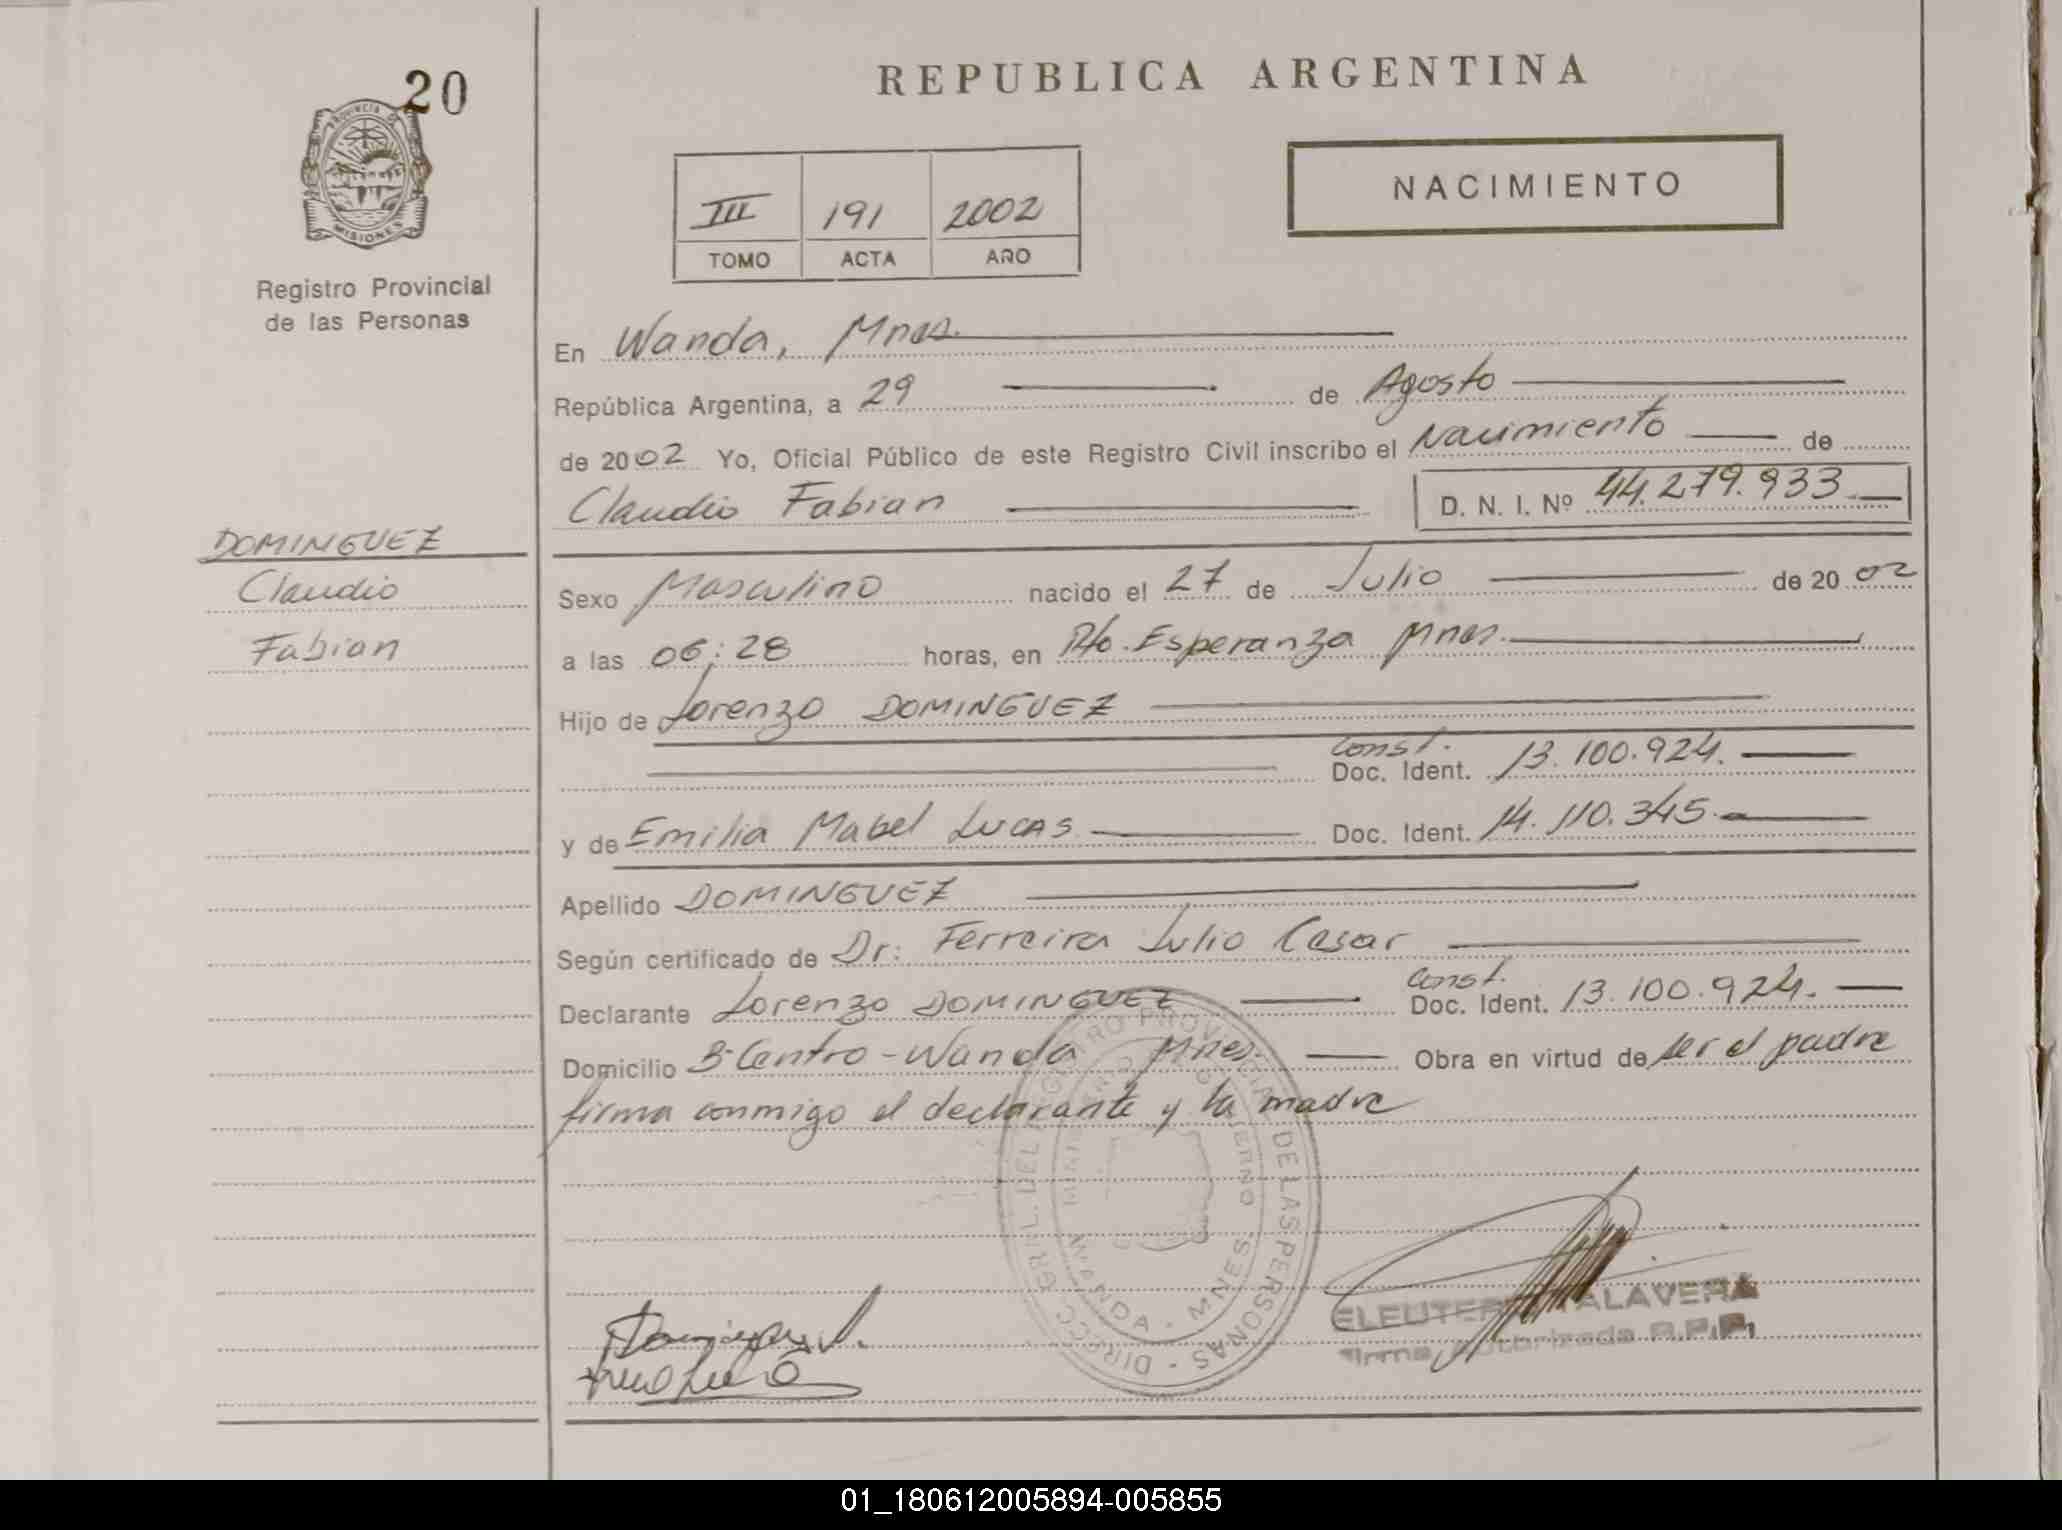 20
PROVINCIA DE
MISIONES
Registro Provincial
de las Personas
DOMINGUEZ
Claudio
Fabian
REPUBLICA ARGENTINA
NACIMIENTO
III 191 2002
TOMO ACTA AÑO
En Wanda, Mnes.
República Argentina, a 29 de Agosto
de 2002 Yo, Oficial Público de este Registro Civil inscribo el Nacimiento de
Claudio Fabian D. N. I. Nº 44.279.933.
Sexo Masculino nacido el 27 de Julio de 2002
a las 06:28 horas, en Pto. Esperanza Mnes.
Hijo de Lorenzo DOMINGUEZ
Const.
Doc. Ident. 13.100.924.
y de Emilia Mabel Lucas Doc. Ident. 14.110.345.
Apellido DOMINGUEZ
Según certificado de Dr: Ferreira Julio Cesar
Const.
Declarante Lorenzo DOMINGUEZ Doc. Ident. 13.100.924.
Domicilio Bº Centro - Wanda Mnes. Obra en virtud de ser el padre
firma conmigo el declarante y la madre
DIRECC. GRAL. DEL REGISTRO PROVINCIAL DE LAS PERSONAS
MINISTERIO DE GOBIERNO
WANDA - MNES.
TALAVERA
Firma Autorizada R.P.P.
01_180612005894-005855